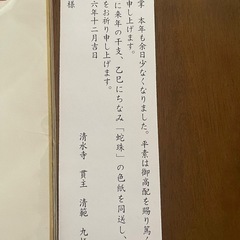 掌 本年も余日少なくなりました。平素は御高配を賜り篤く
申し上げます。
に来年の干支、乙巳にちなみ「蛇珠」の色紙を同送し、
をお祈り申し上げます。
六年十二月吉日
清水寺 貫主 清範
様